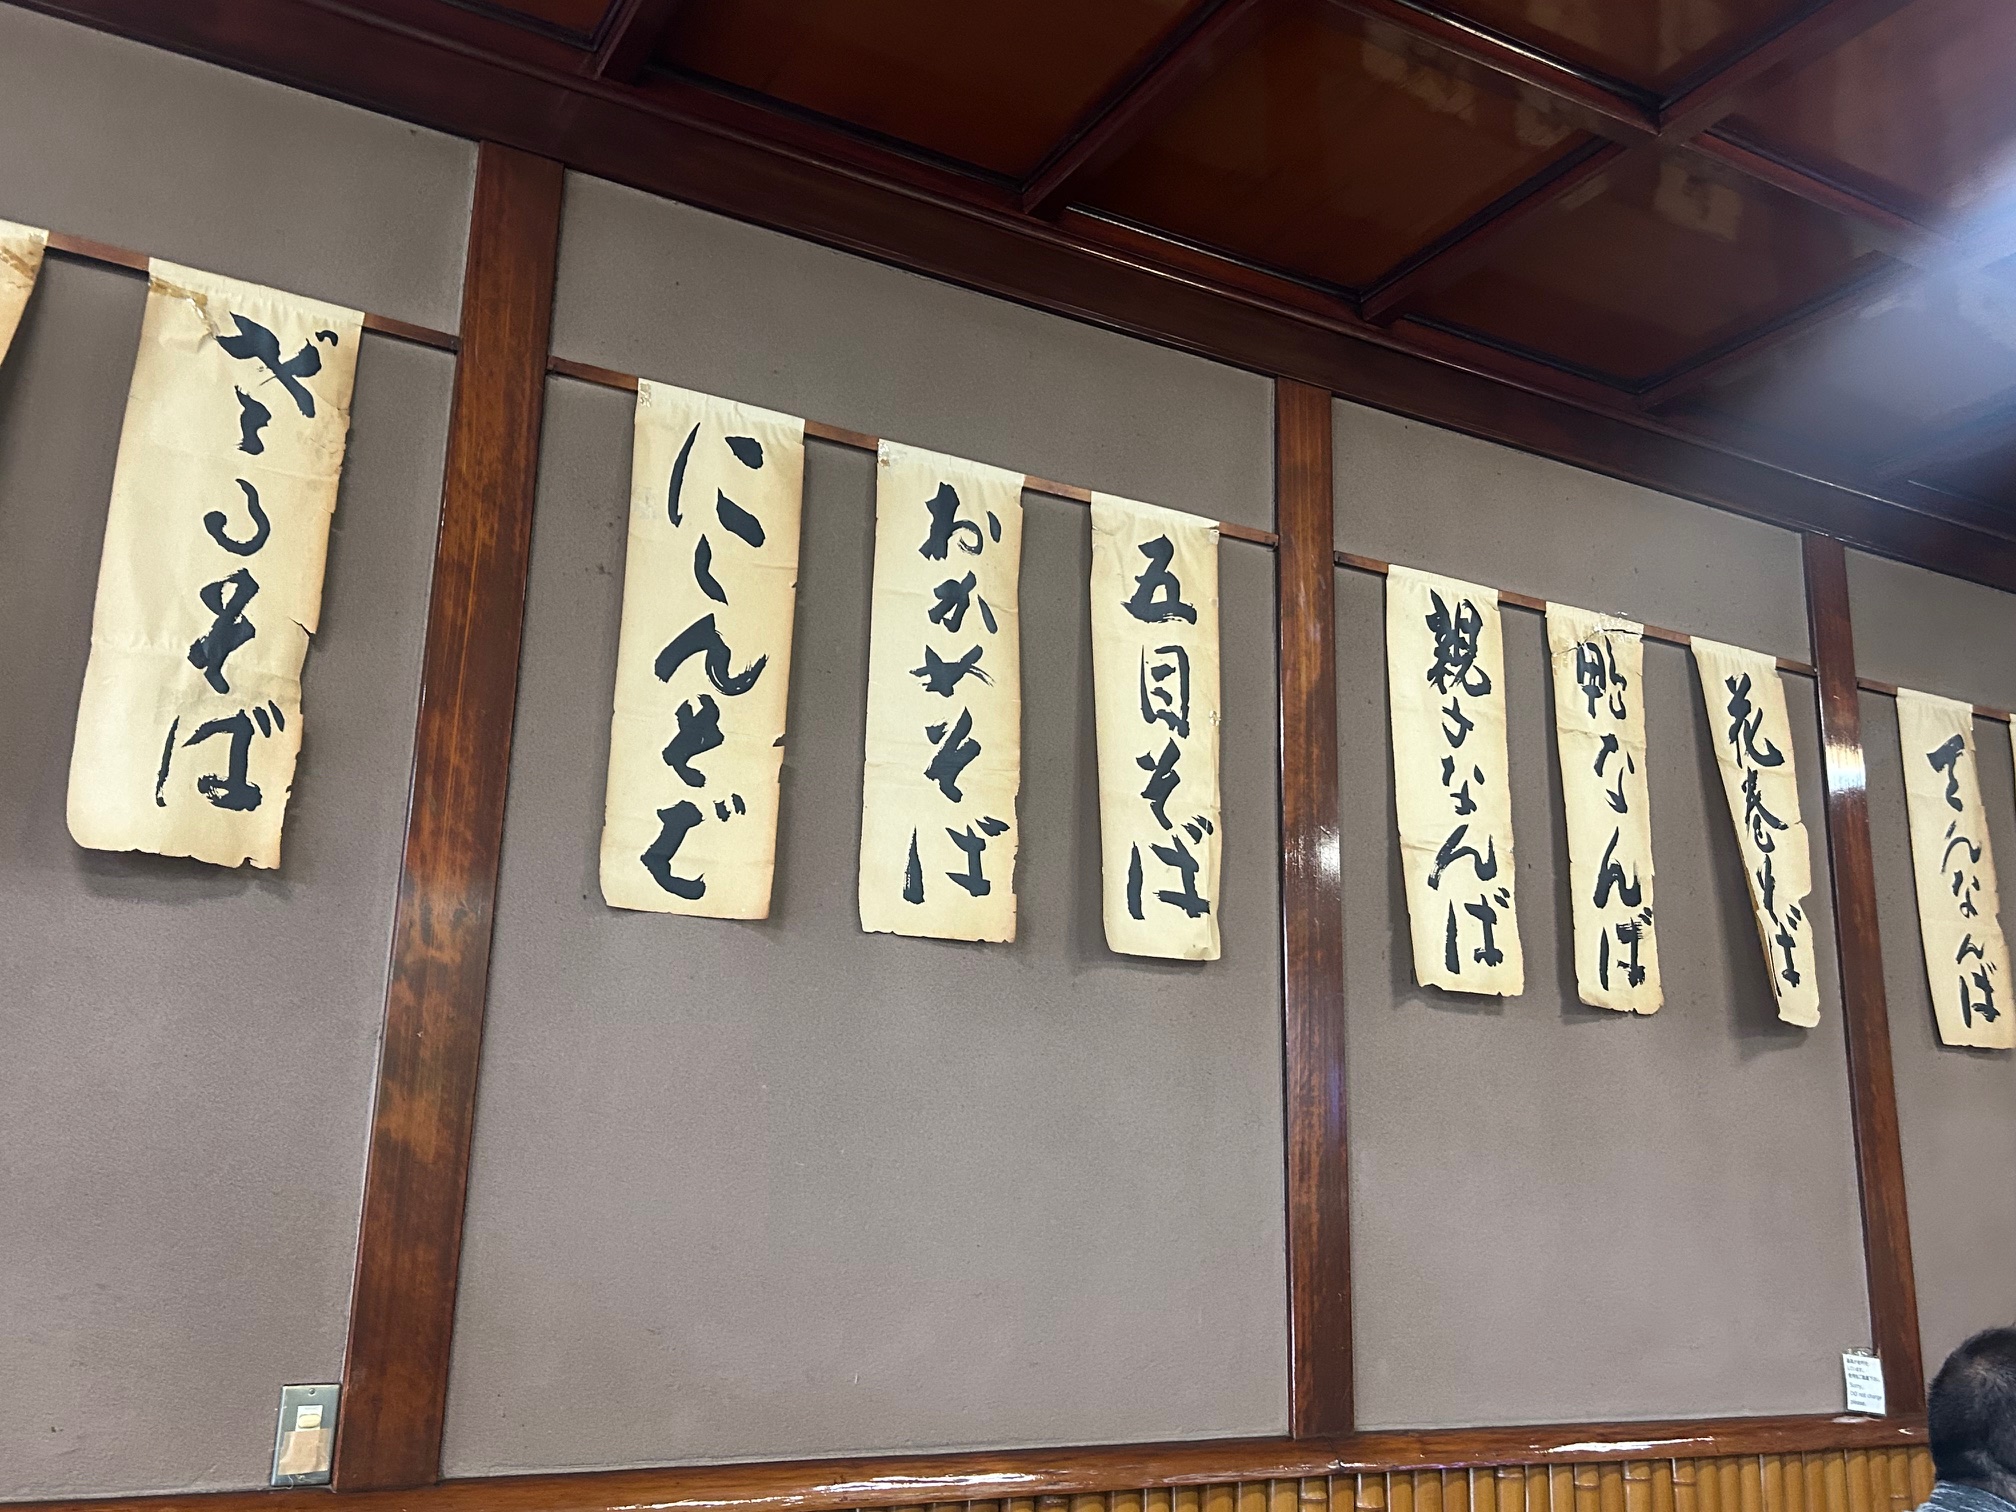 てんなんば
花巻そば
鴨なんば
親子なんば
五目そば
おかめそば
にしんそば
ざるそば
Sorry.
DO not charge
please.